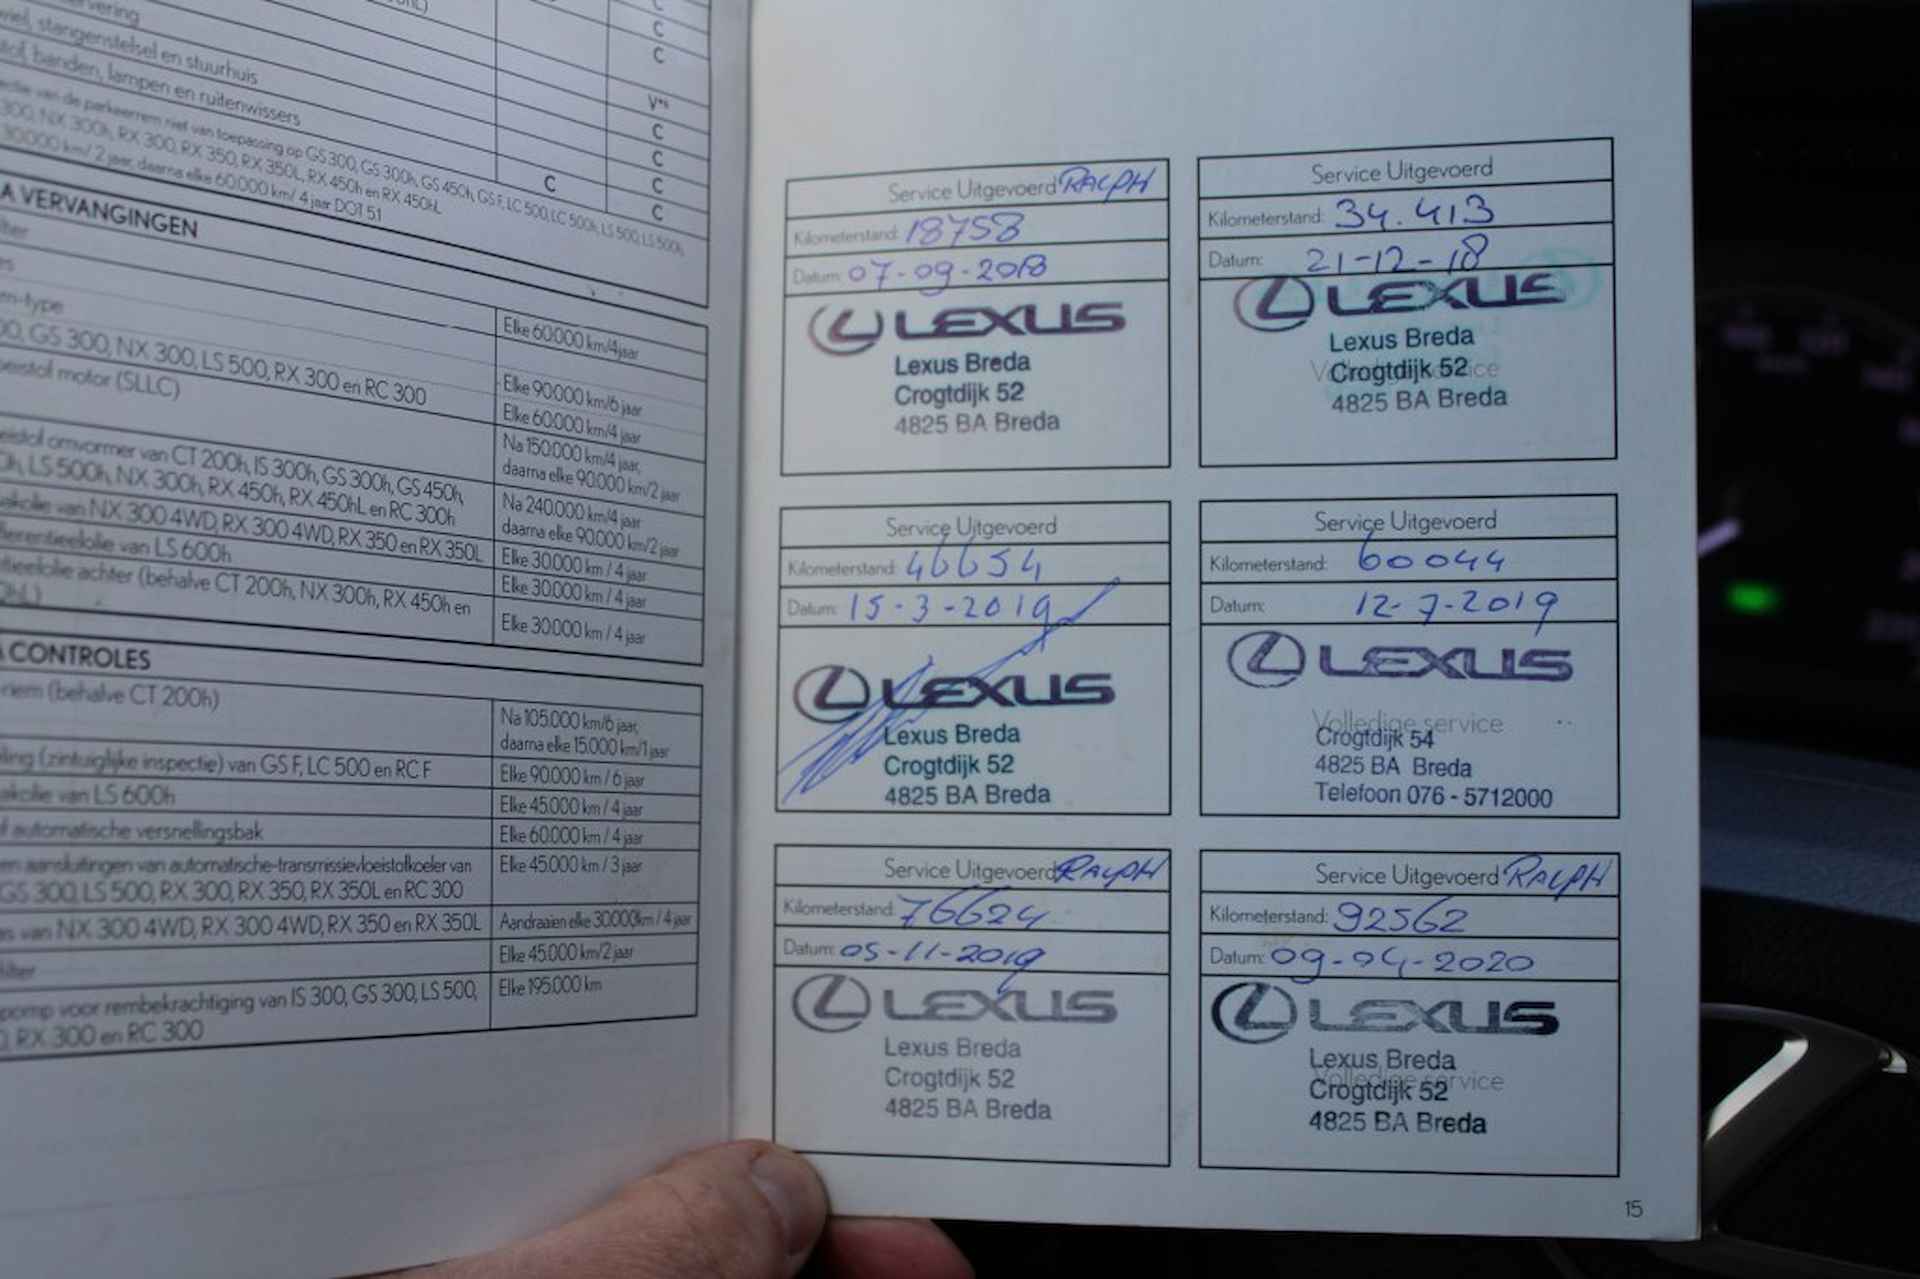 stangenstelsel en stuurhuis
banden, lampen en ruitenwissers
van de parkeerrem niet van toepassing op GS 300, GS 300h, GS 450h, GS F, LC 500, LC 500h, LS 500, LS 500h,
300, NX 300h, RX 300, RX 350, RX 350L, RX 450h en RX 450hL
30.000 km/ 2 jaar, daarna elke 60.000 km/ 4 jaar DOT 5.1
C
C
C
C
C
C
C
C
A VERVANGINGEN
Elke 60.000 km/4jaar
GS 300, NX 300, LS 500, RX 300 en RC 300
Elke 90.000 km/6 jaar
motor (SLLC)
Elke 60.000 km/4 jaar
Na 150.000 km/4 jaar,
daarna elke 90.000 km/2 jaar
omvormer van CT 200h, IS 300h, GS 300h, GS 450h,
LS 500h, NX 300h, RX 450h, RX 450hL en RC 300h
Na 240.000 km/4 jaar
daarna elke 90.000 km/2 jaar
van NX 300 4WD, RX 300 4WD, RX 350 en RX 350L
Elke 30.000 km / 4 jaar
van LS 600h
Elke 30.000 km / 4 jaar
achter (behalve CT 200h, NX 300h, RX 450h en
Elke 30.000 km / 4 jaar
CONTROLES
riem (behalve CT 200h)
Na 105.000 km/6 jaar,
daarna elke 15.000 km/1 jaar
(zintuiglijke inspectie) van GS F, LC 500 en RC F
Elke 90.000 km / 6 jaar
van LS 600h
Elke 45.000 km / 4 jaar
automatische versnellingsbak
Elke 60.000 km / 4 jaar
en aansluitingen van automatische-transmissievloeistofkoeler van
Elke 45.000 km / 3 jaar
GS 300, LS 500, RX 300, RX 350, RX 350L en RC 300
van NX 300 4WD, RX 300 4WD, RX 350 en RX 350L
Aandraaien elke 30.000km / 4 jaar
Elke 45.000 km/2 jaar
pomp voor rembekrachtiging van IS 300, GS 300, LS 500,
Elke 195.000 km
RX 300 en RC 300
Service Uitgevoerd RALPH
Kilometerstand: 18758
Datum: 07-09-2018
LEXUS
Lexus Breda
Crogtdijk 52
4825 BA Breda
Service Uitgevoerd
Kilometerstand: 34.413
Datum: 21-12-18
LEXUS
Lexus Breda
Crogtdijk 52
4825 BA Breda
Service Uitgevoerd
Kilometerstand: 46654
Datum: 15-3-2019
LEXUS
Lexus Breda
Crogtdijk 52
4825 BA Breda
Service Uitgevoerd
Kilometerstand: 60044
Datum: 12-7-2019
LEXUS
Volledige service
Crogtdijk 54
4825 BA Breda
Telefoon 076 - 5712000
Service Uitgevoerd RALPH
Kilometerstand: 76624
Datum: 05-11-2019
LEXUS
Lexus Breda
Crogtdijk 52
4825 BA Breda
Service Uitgevoerd RALPH
Kilometerstand: 92562
Datum: 09-04-2020
LEXUS
Lexus Breda
Volledige service
Crogtdijk 52
4825 BA Breda
15